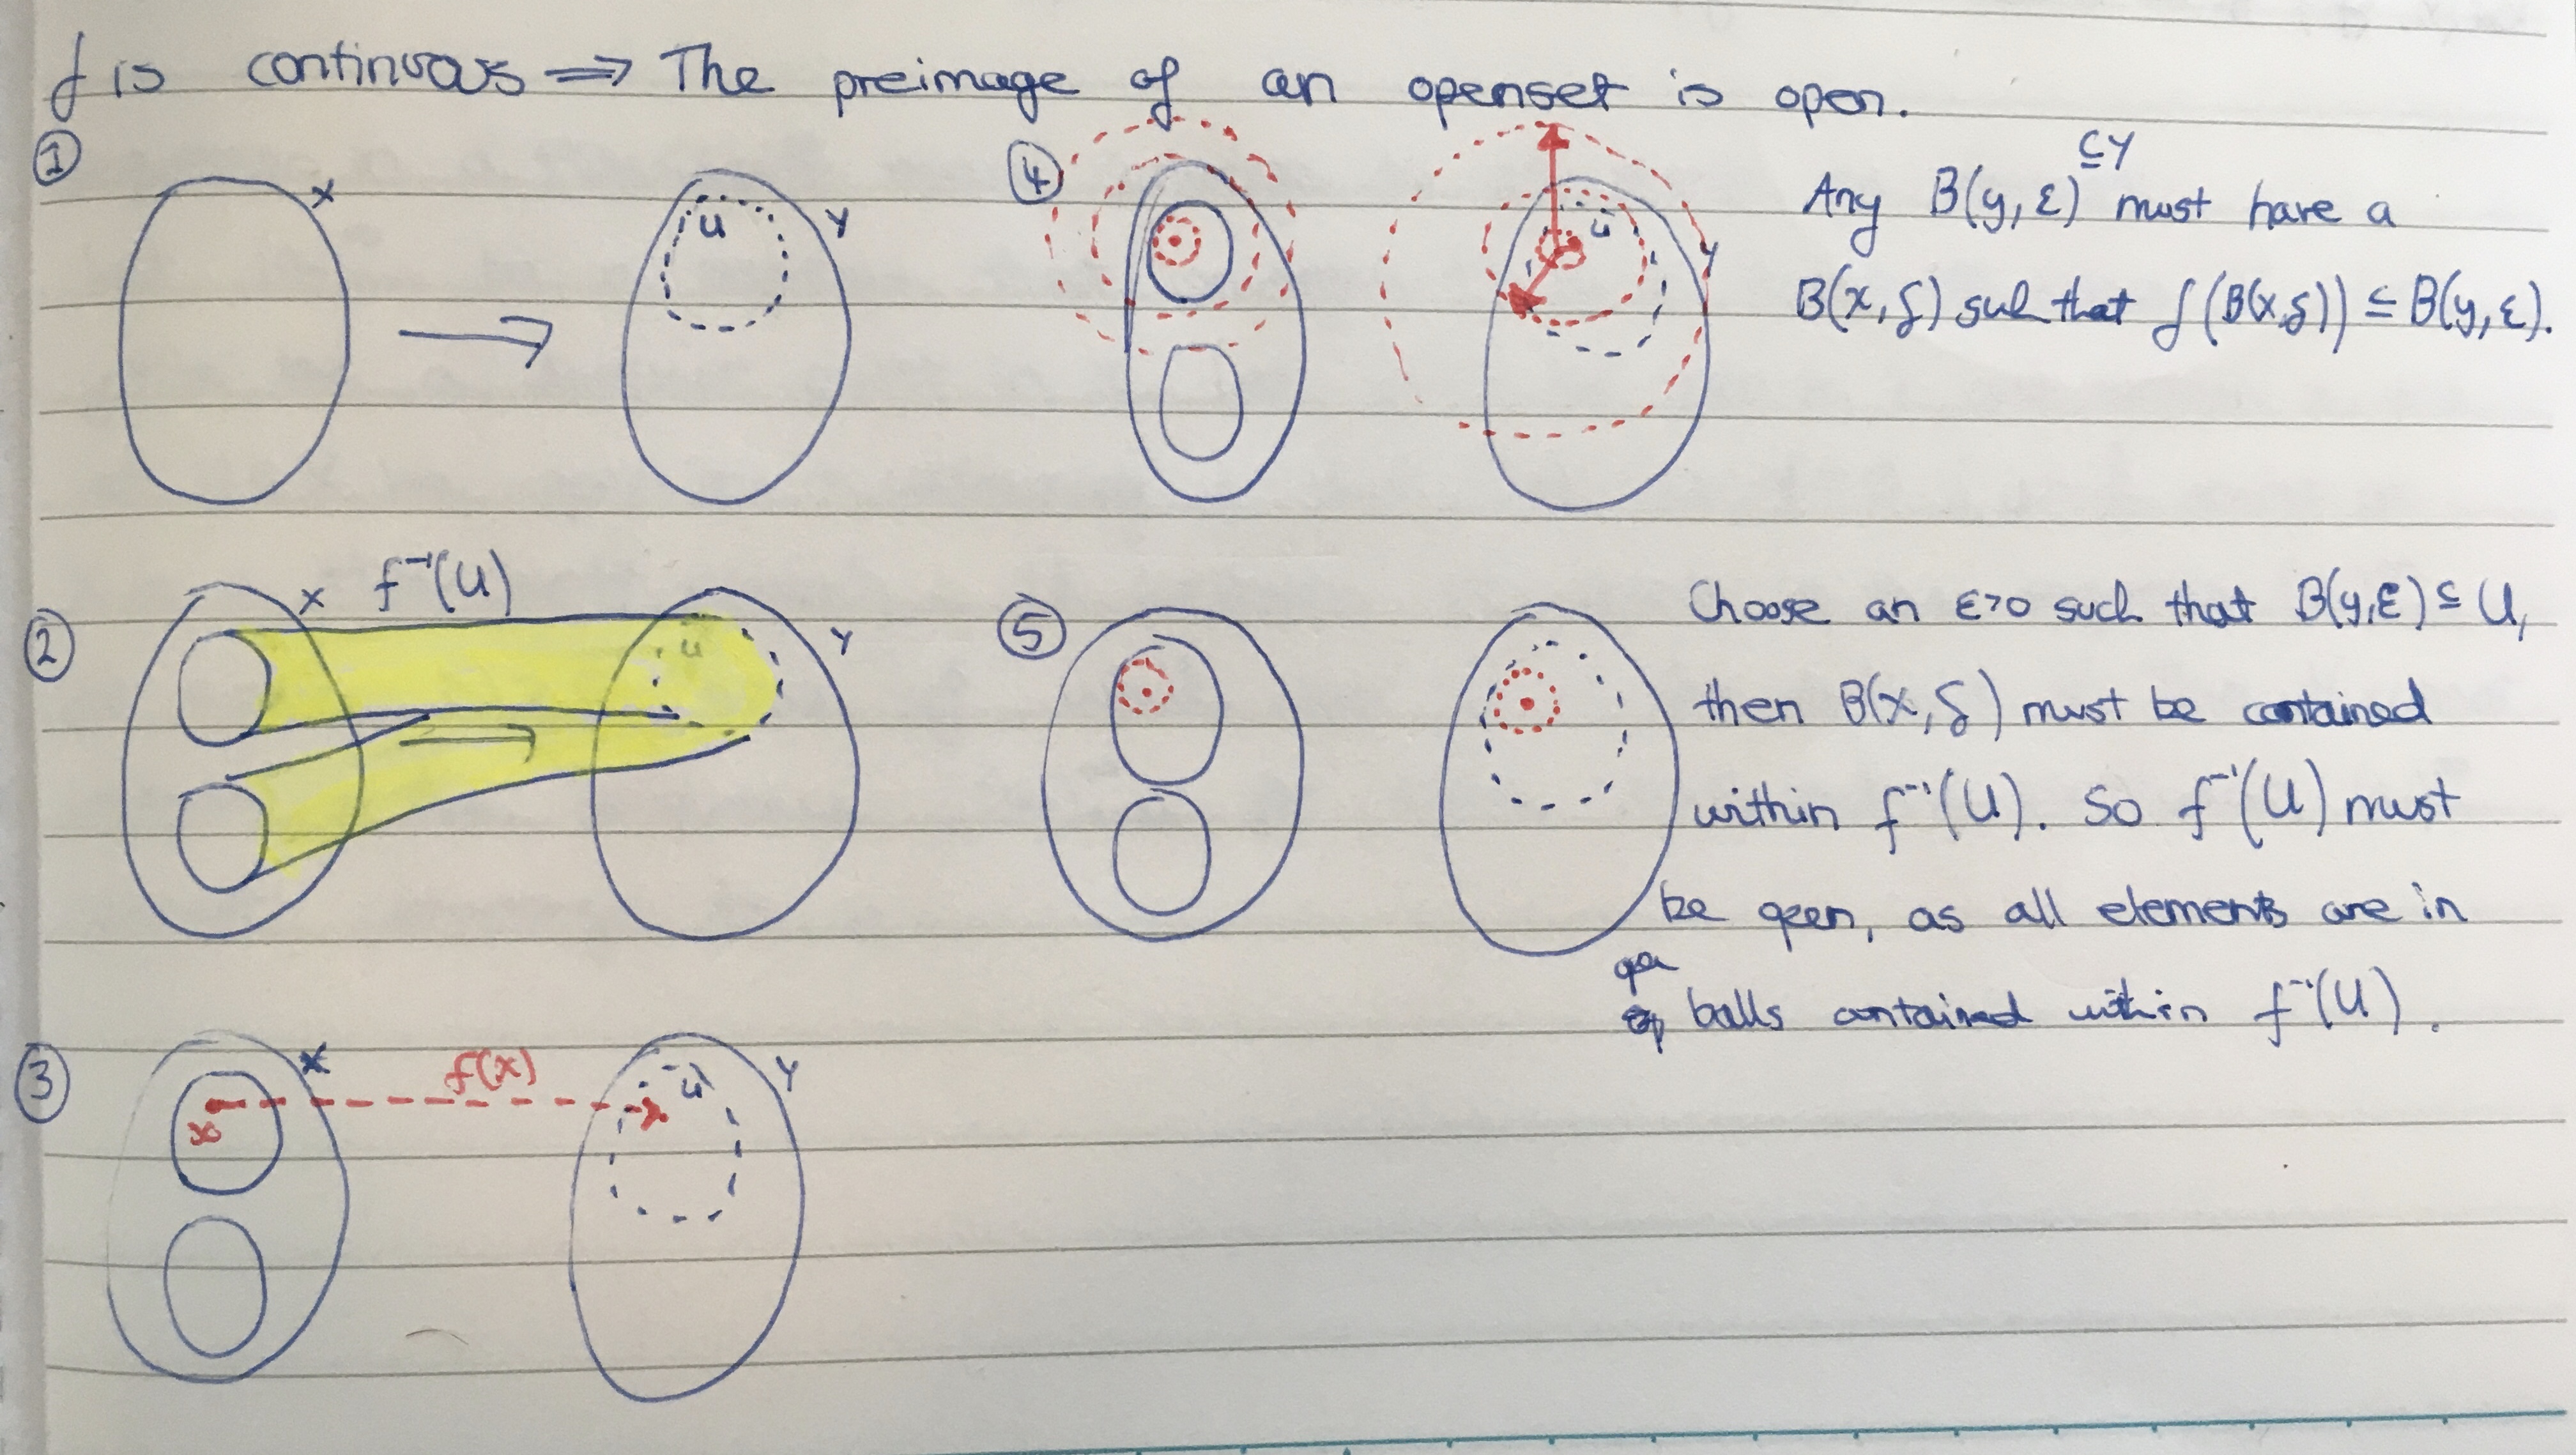 f is continuous ⟹ The preimage of an openset is open.
①
X
U
Y
④
U
Y
⊆Y
Any B(y, ε) must have a
B(x, δ) such that f(B(x,δ)) ⊆ B(y, ε).
②
X f⁻¹(U)
U
Y
⑤
Choose an ε>0 such that B(y,ε) ⊆ U,
then B(x, δ) must be contained
within f⁻¹(U). So f⁻¹(U) must
be open, as all elements are in
balls contained within f⁻¹(U).
③
X
x
f(x)
U
Y